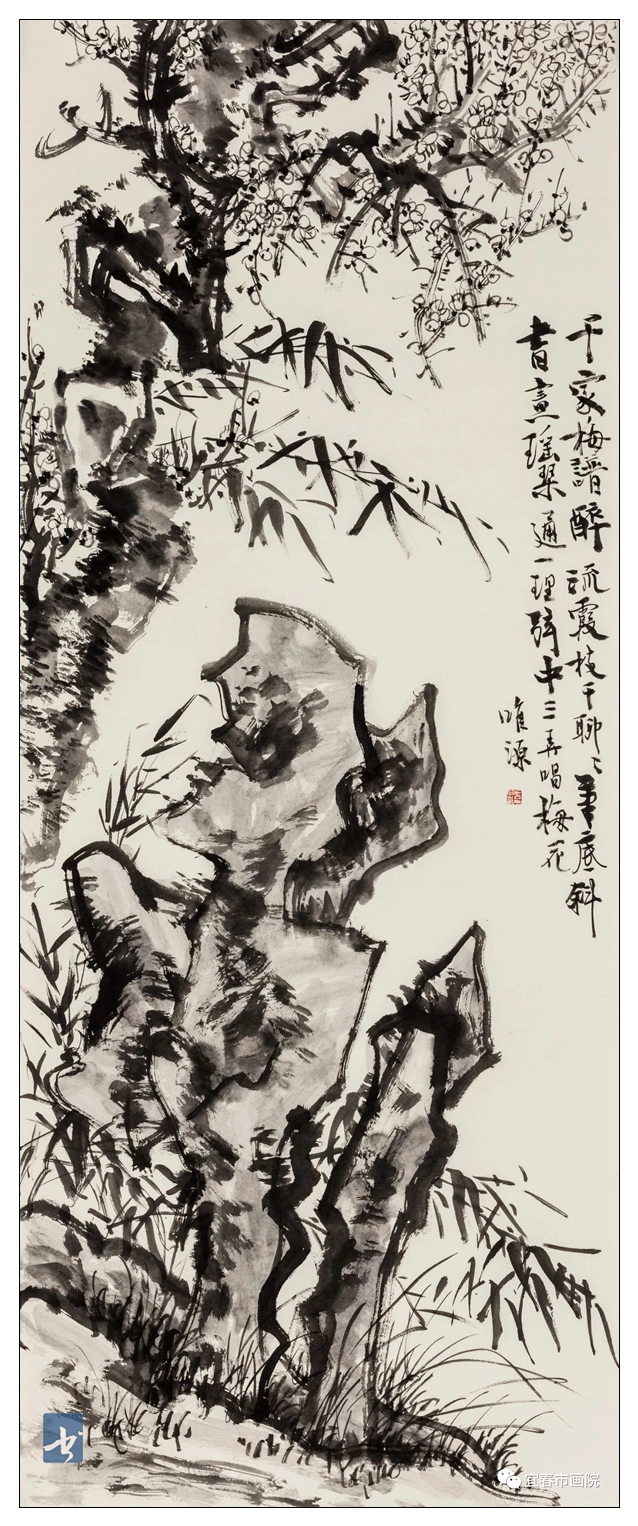 千家梅譜醉流霞枝干聊〻筆底斜
書畫瑤琴通一理弦中三弄唱梅花
唯源
书
宜春市画院